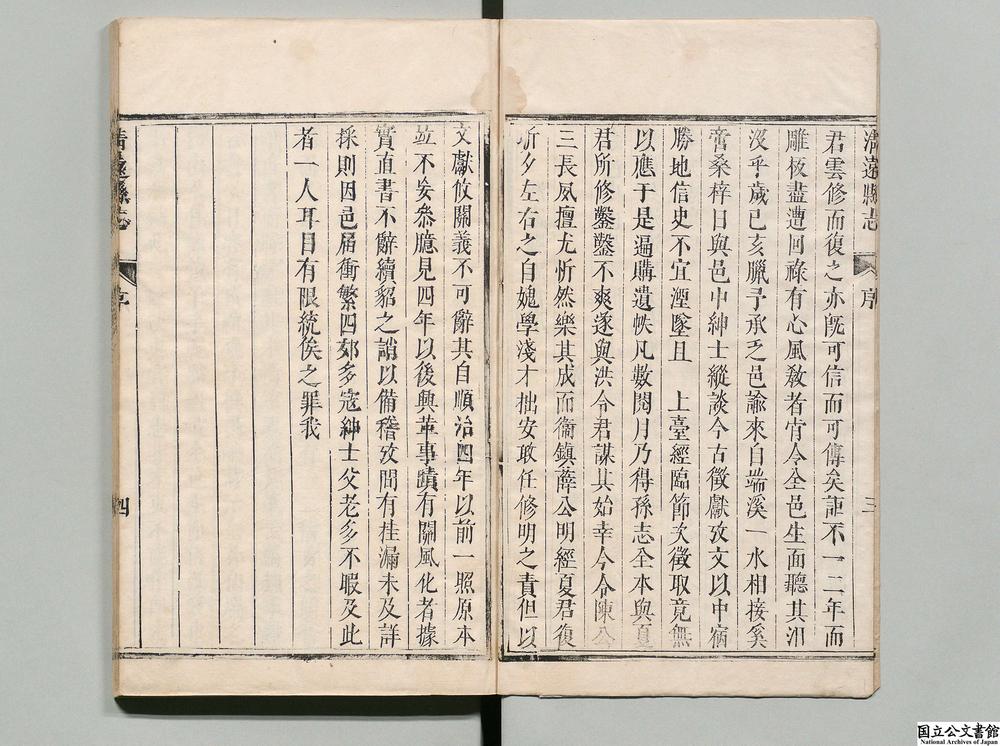 清遠縣志 序 三
君雲修而復之亦既可信而可傳矣詎不一二年而
雕板盡遭回祿有心風教者肯令全邑生面聽其汨
沒乎歲己亥臘予承乏邑諭來自端溪一水相接奚
啻桑梓日與邑中紳士縱談今古徵獻攷文以中宿
勝地信史不宜湮墜且 上臺經臨節次徵取竟無
以應于是遍購遺帙凡數閱月乃得孫志全本與夏
君所修鑿鑿不爽遂與洪令君謀其始幸今令陳公
三長夙擅尤忻然樂其成而衞鎮薛公明經夏君復
昕夕左右之自媿學淺才拙安敢任修明之責但以
文獻攸關義不可辭其自順治四年以前一照原本
竝不妄叅臆見四年以後興革事蹟有關風化者據
實直書不辭續貂之誚以備稽攷間有挂漏未及詳
採則因邑居衝繁四郊多寇紳士父老多不暇及此
者一人耳目有限統俟之罪我
清遠縣志 序 四
国立公文書館
National Archives of Japan